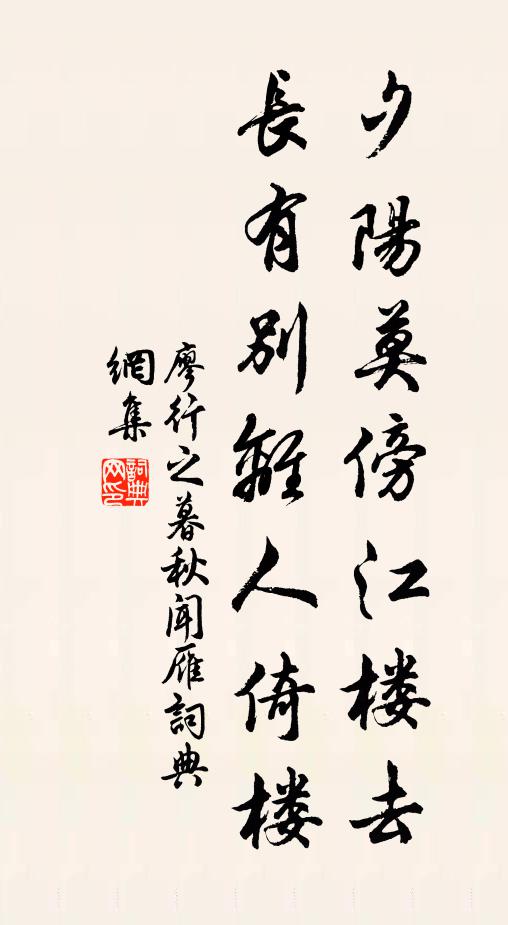 夕陽莫傍江楼去
長有別離人倚楼
廖行之暮秋聞雁詞典
網集
詞典
网印